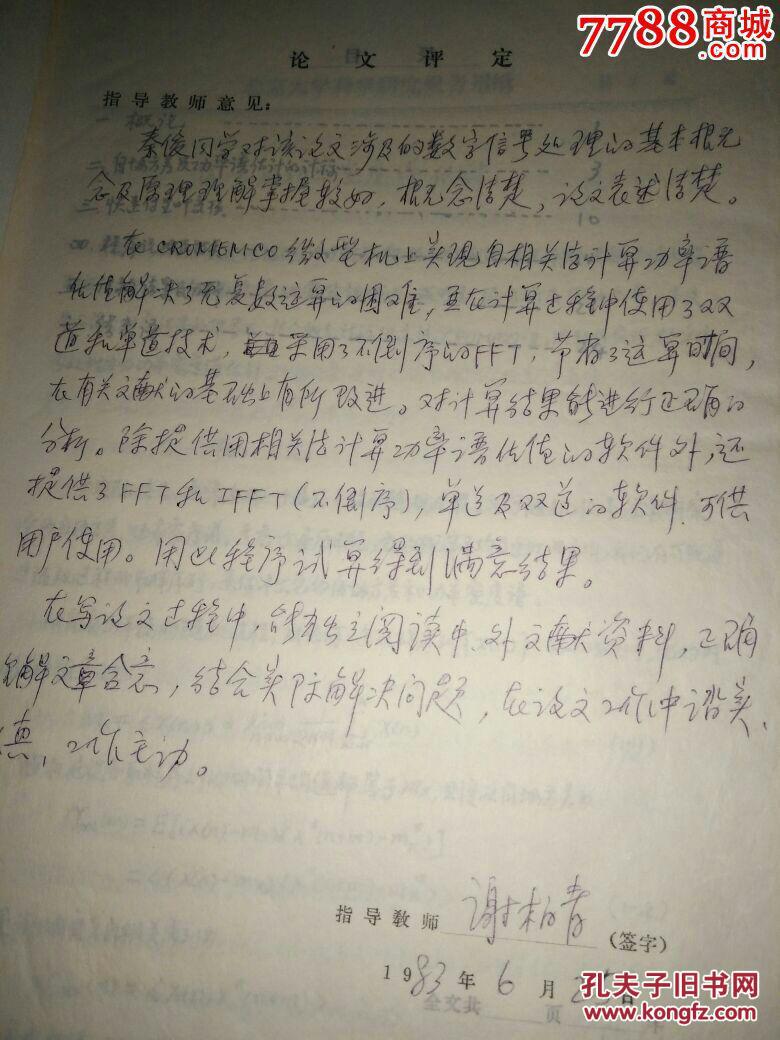 7788商城
.com
论文评定
指导教师意见：
秦俊同学对该论文涉及的数字信号处理的基本概
念及原理理解掌握较好，概念清楚，论文表述清楚。
在CROMEMCO微型机上实现自相关法计算功率谱
估值解决了无复数运算的困难，且在计算过程中使用了双
道和单道技术，采用了不倒序的FFT，节省了运算时间，
在有关文献的基础上有所改进。对计算结果能进行正确的
分析。除提供用相关法计算功率谱估值的软件外，还
提供了FFT和IFFT(不倒序)，单道及双道的软件，可供
用户使用。用此程序试算得到满意结果。
在写论文过程中，能独立阅读中、外文献资料，正确
理解文章含意，结合实际解决问题，在论文工作中踏实、
认真，工作主动。
指导教师 谢柏青 (签字)
1983年6月25日
全文共 页
孔夫子旧书网
www.kongfz.com